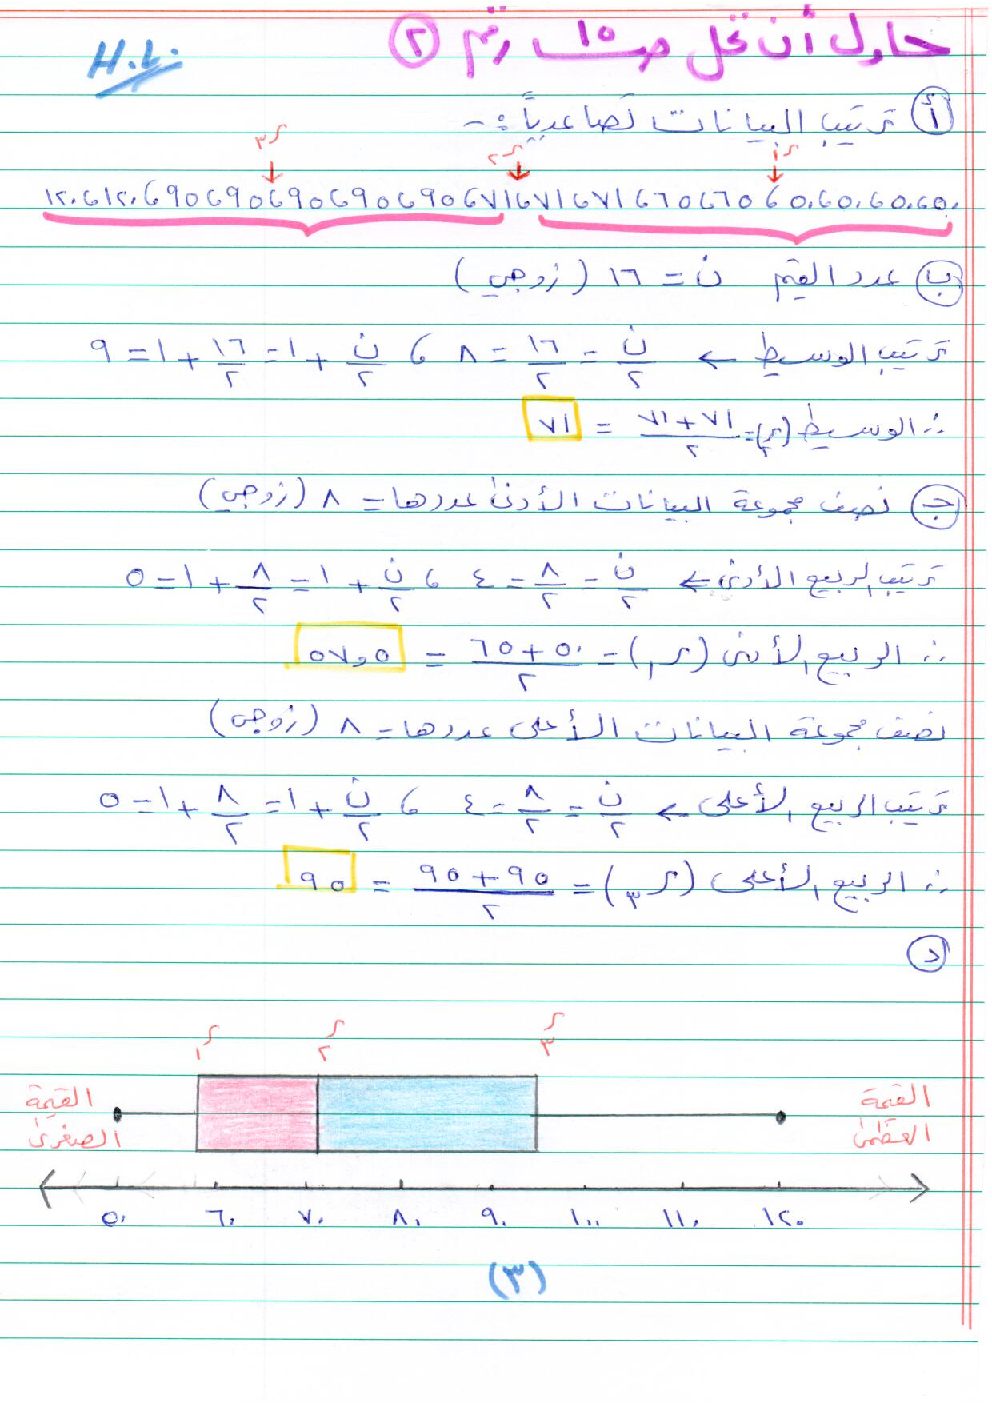 حاول أن تحل صـ ١٥ رقم ②
H.L.
أ ترتيب البيانات تصاعدياً :-
ر١ ر٢ ر٣
٥٠، ٥٠، ٥٠، ٥٠، ٦٥، ٦٥، ٧١، ٧١، ٧١، ٩٥، ٩٥، ٩٥، ٩٥، ٩٥، ١٢٠، ١٢٠
ب عدد القيم ن = ١٦ (زوجي)
ترتيب الوسيط ← ن/٢ = ١٦/٢ = ٨ ، ن/٢ + ١ = ١٦/٢ + ١ = ٩
∴ الوسيط (ر٢) = ٧١+٧١/٢ = ٧١
ج نصف مجموعة البيانات الأدنى عددها = ٨ (زوجي)
ترتيب الربيع الأدنى ← ن/٢ = ٨/٢ = ٤ ، ن/٢ + ١ = ٨/٢ + ١ = ٥
∴ الربيع الأدنى (ر١) = ٥٠+٦٥/٢ = ٥٧,٥
نصف مجموعة البيانات الأعلى عددها = ٨ (زوجي)
ترتيب الربيع الأعلى ← ن/٢ = ٨/٢ = ٤ ، ن/٢ + ١ = ٨/٢ + ١ = ٥
∴ الربيع الأعلى (ر٣) = ٩٥+٩٥/٢ = ٩٥
د
ر١ ر٢ ر٣
القيمة الصغرى
القيمة العظمى
٥٠ ٦٠ ٧٠ ٨٠ ٩٠ ١٠٠ ١١٠ ١٢٠
(٣)